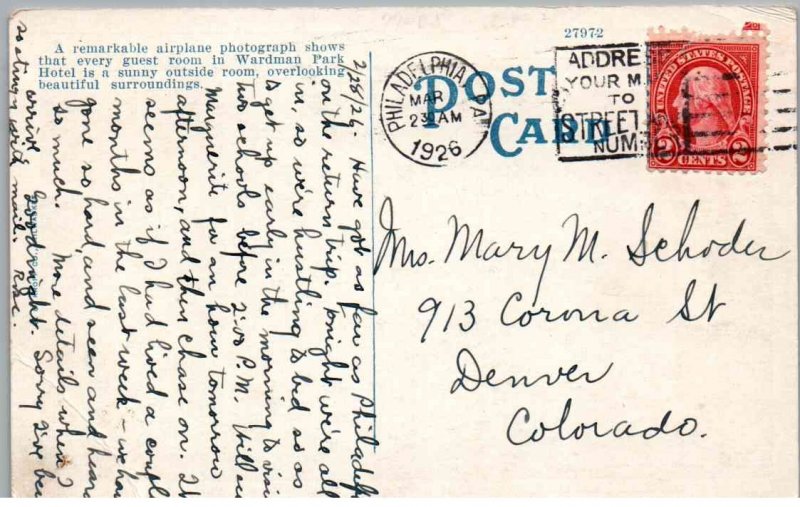 A remarkable airplane photograph shows
that every guest room in Wardman Park
Hotel is a sunny outside room, overlooking
beautiful surroundings.
27972
POST
CARD
PHILADELPHIA PA
MAR
2 30 AM
1926
ADDRE
YOUR M
TO
STREET A
NUM
UNITED STATES POSTAGE
2 CENTS 2
2/28/26. Have got as far as Philadelp
on the return trip. Tonight we're all
in, so we're hustling to bed so as
to get up early in the morning to visi
two schools before 2:00 P.M. Will see
Marguerite for an hour tomorrow
afternoon, and then chase on. It
seems as if I had lived a coupl
months in the last week - we hav
gone so hard, and seen and hear
so much. More details when I
arrive. Goodnight. Sorry I've bee
so stingy with mail.
Mrs. Mary M. Schoder
913 Corona St
Denver
Colorado.